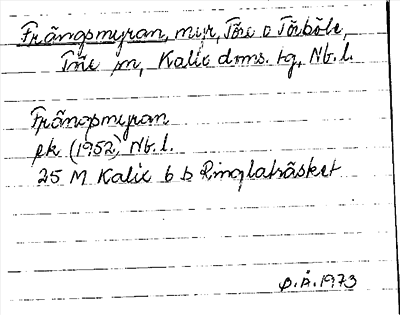 Frängsmyran, myr, Töre o Törböle,
Töre sn, Kalix doms. tg, Nb.l.
Frängsmyran
ek (1952) Nb.l.
25 M Kalix 6 b Ringlaträsket
Ö.Å. 1973